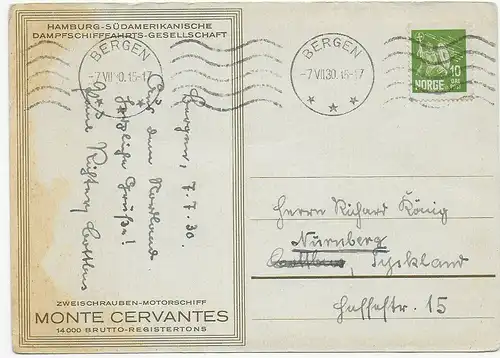 HAMBURG-SÜDAMERIKANISCHE
DAMPFSCHIFFFAHRTS-GESELLSCHAFT
BERGEN
-7 VII 30.15-17
BERGEN
-7 VII 30.15-17
10
ØRE
NORGE
Bergen, 7.7.30
Aus dem Nordland
herzliche Grüße!
Cottbus
Herrn Richard König
Nürnberg
Cottbus, Tyskland
Hasse str. 15
ZWEISCHRAUBEN-MOTORSCHIFF
MONTE CERVANTES
14000 BRUTTO-REGISTERTONS